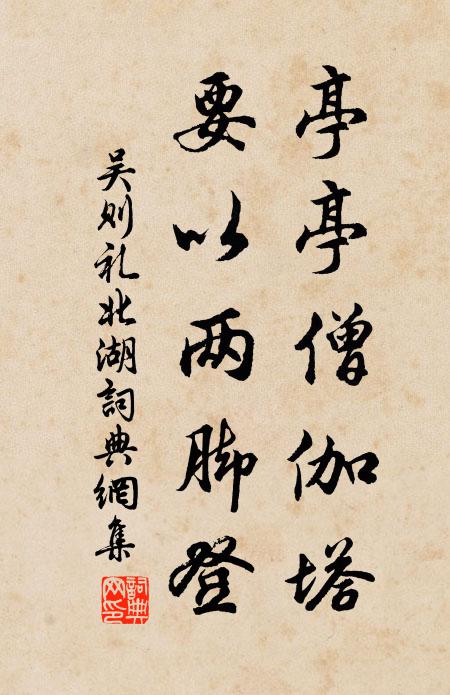 亭亭僧伽塔
要以两脚登
吴则礼北湖詞典網集
詞典